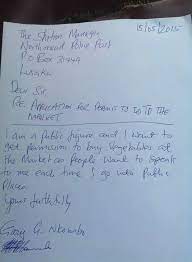 15/05/2015
The Station Manager
Northmead Police Post
P O Box 31444
Lusaka
Dear Sir,
RE: APPLICATION FOR PERMIT TO GO TO THE
MARKET
I am a Public figure and I want to
get permission to buy vegetables at
the Market as People want to speak
to me each time I go into Public
Places
Yours faithfully
Gary G. Nkombo